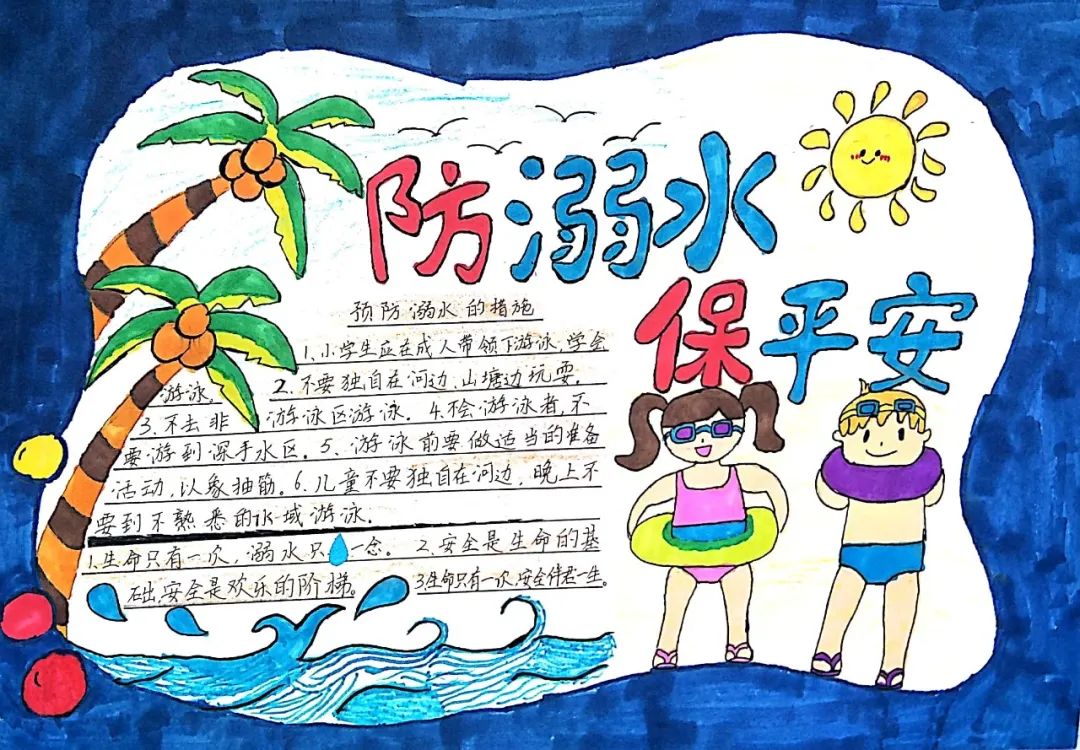 防溺水
保平安
预防溺水的措施
1、小学生应在成人带领下游泳.学会
游泳. 2.不要独自在河边、山塘边玩耍.
3.不去非 游泳区游泳. 4.不会游泳者,不
要游到深手水区. 5、游泳前要做适当的准备
活动,以象抽筋。6.儿童不要独自在河边,晚上不
要到不熟悉的水域游泳.
1.生命只有一次,溺水只 一念。 2.安全是生命的基
础,安全是欢乐的阶梯。 3.生命只有一次,安全伴君一生。